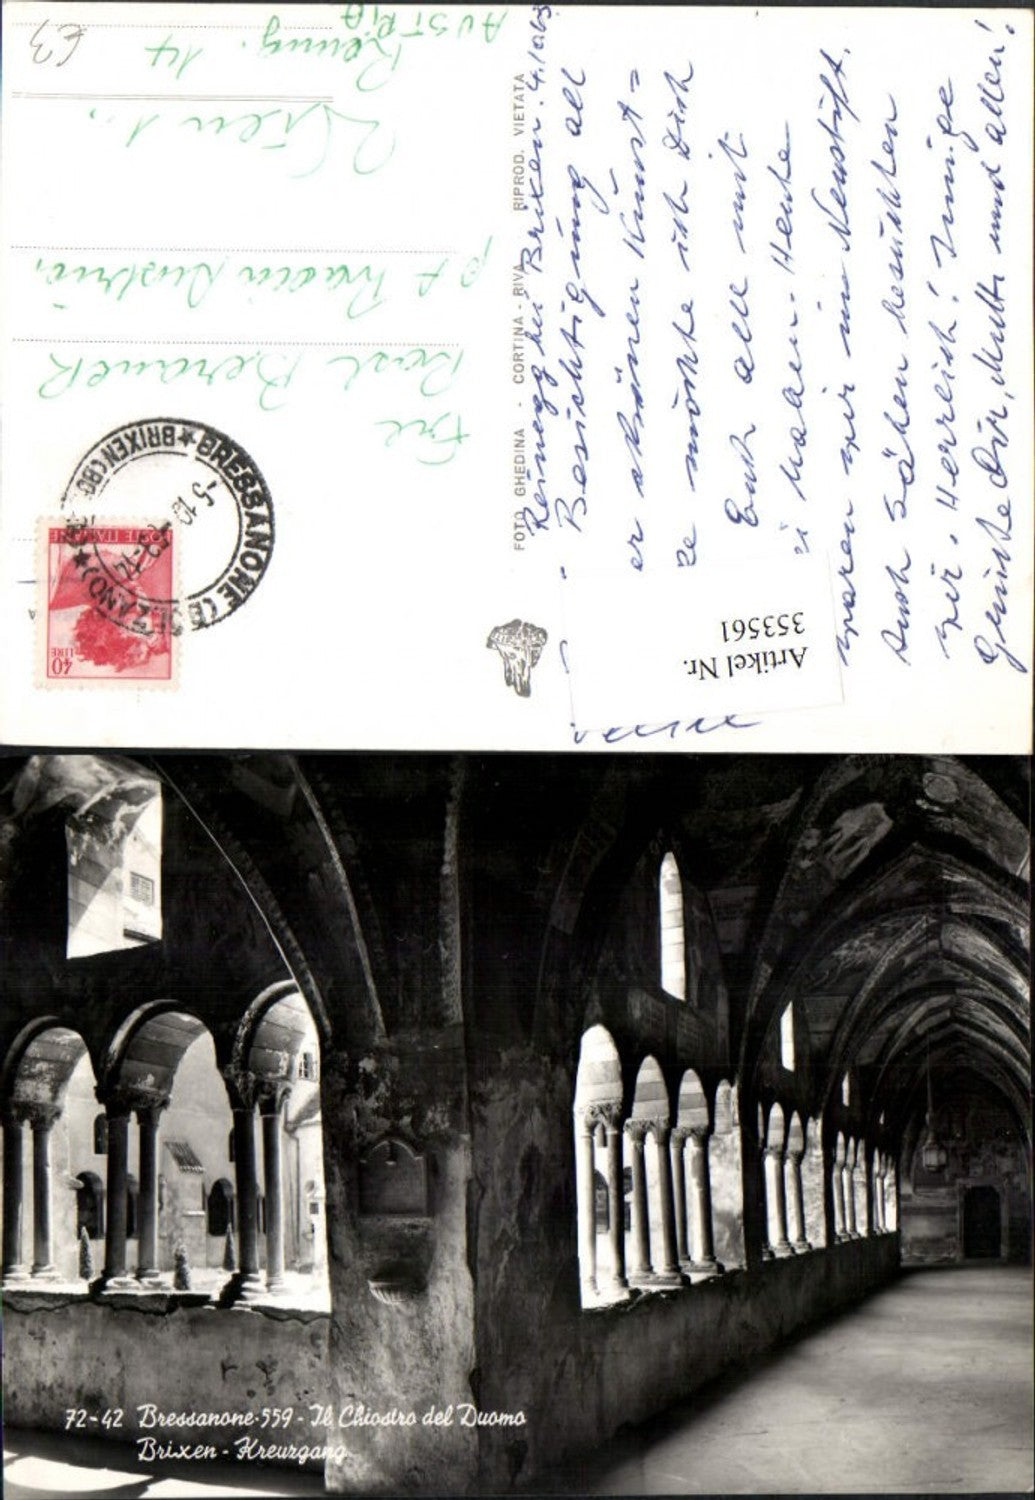 Reinegg bei Brixen. 4.10.63
Besichtigung all
er schönen Kunst=
ze möchte ich Dich
Euch alle mit
haben. Heute
waren wir in Neustift.
Auch Säben besuchten
wir. Herrlich! Innige
Grüsse Dir, Mutti und allen!
FOTO GHEDINA - CORTINA - RIVA RIPROD. VIETATA
Artikel Nr.
353561
Rosl Beranek
Wien 1.,
Renng. 14
AUSTRIA
€3
BRESSANONE (BOLZANO)
BRIXEN
-5.10
POSTE ITALIANE
40
LIRE
72-42 Bressanone-559 - Il Chiostro del Duomo
Brixen - Kreuzgang